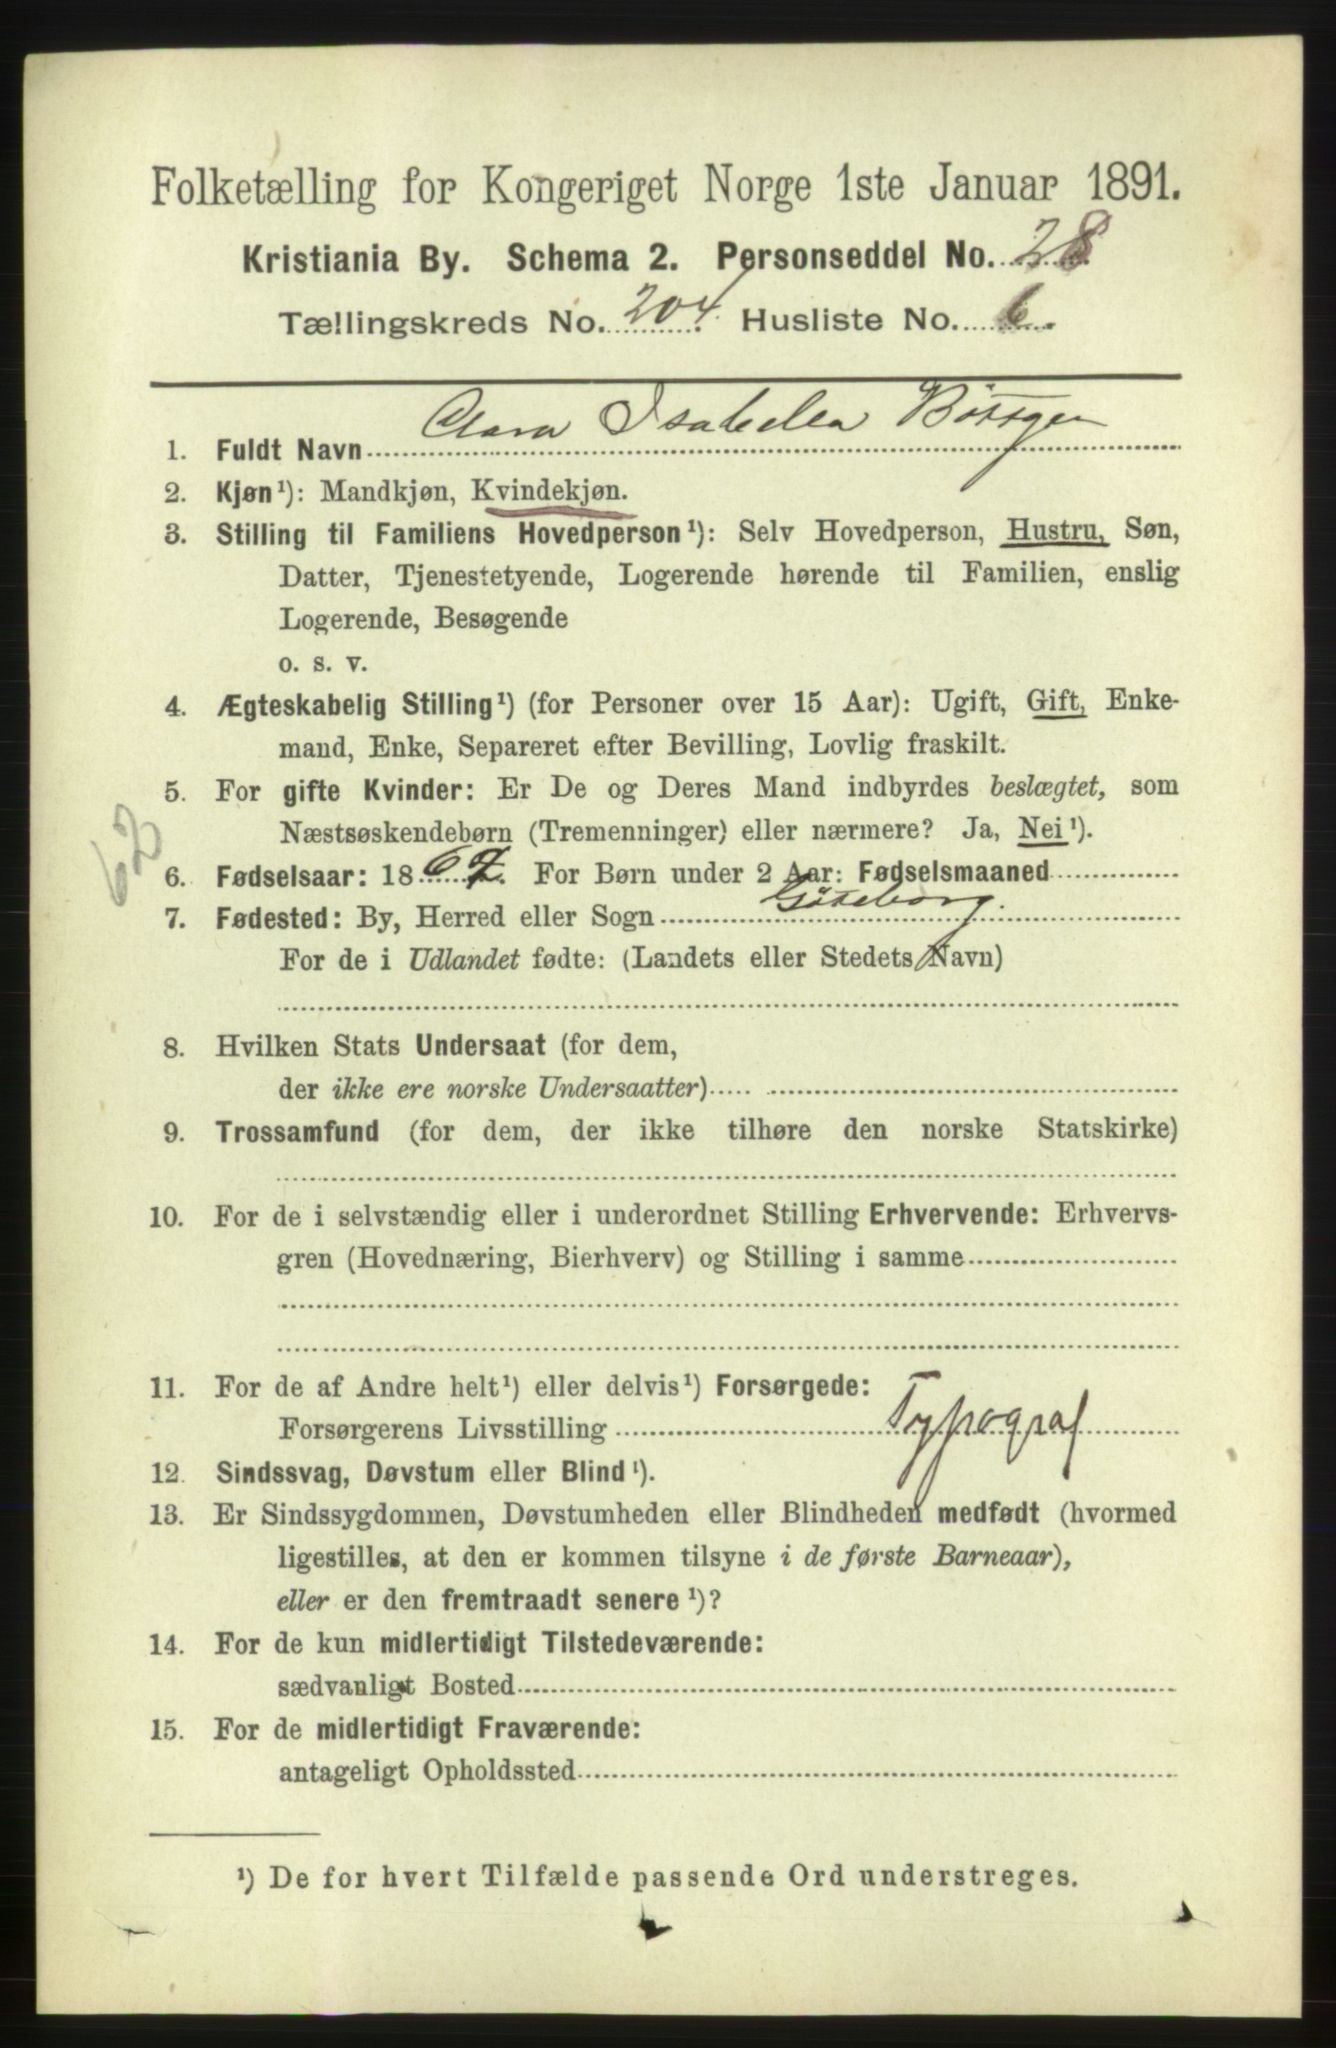 Folketælling for Kongeriget Norge 1ste Januar 1891.
Kristiania By. Schema 2. Personseddel No. 28
Tællingskreds No. 204. Husliste No. 6.
1. Fuldt Navn Clara Isabella Böttger
2. Kjøn¹): Mandkjøn, Kvindekjøn.
3. Stilling til Familiens Hovedperson¹): Selv Hovedperson, Hustru, Søn,
Datter, Tjenestetyende, Logerende hørende til Familien, enslig
Logerende, Besøgende
o. s. v.
4. Ægteskabelig Stilling¹) (for Personer over 15 Aar): Ugift, Gift, Enke-
mand, Enke, Separeret efter Bevilling, Lovlig fraskilt.
5. For gifte Kvinder: Er De og Deres Mand indbyrdes beslægtet, som
Næstsøskendebørn (Tremenninger) eller nærmere? Ja, Nei¹).
62
6. Fødselsaar: 1867. For Børn under 2 Aar: Fødselsmaaned
7. Fødested: By, Herred eller Sogn Göteborg.
For de i Udlandet fødte: (Landets eller Stedets Navn)
8. Hvilken Stats Undersaat (for dem,
der ikke ere norske Undersaatter)
9. Trossamfund (for dem, der ikke tilhøre den norske Statskirke)
10. For de i selvstændig eller i underordnet Stilling Erhvervende: Erhvervs-
gren (Hovednæring, Bierhverv) og Stilling i samme
11. For de af Andre helt¹) eller delvis¹) Forsørgede:
Forsørgerens Livsstilling Typograf
12. Sindssvag, Døvstum eller Blind¹).
13. Er Sindssygdommen, Døvstumheden eller Blindheden medfødt (hvormed
ligestilles, at den er kommen tilsyne i de første Barneaar),
eller er den fremtraadt senere¹)?
14. For de kun midlertidigt Tilstedeværende:
sædvanligt Bosted
15. For de midlertidigt Fraværende:
antageligt Opholdssted
¹) De for hvert Tilfælde passende Ord understreges.